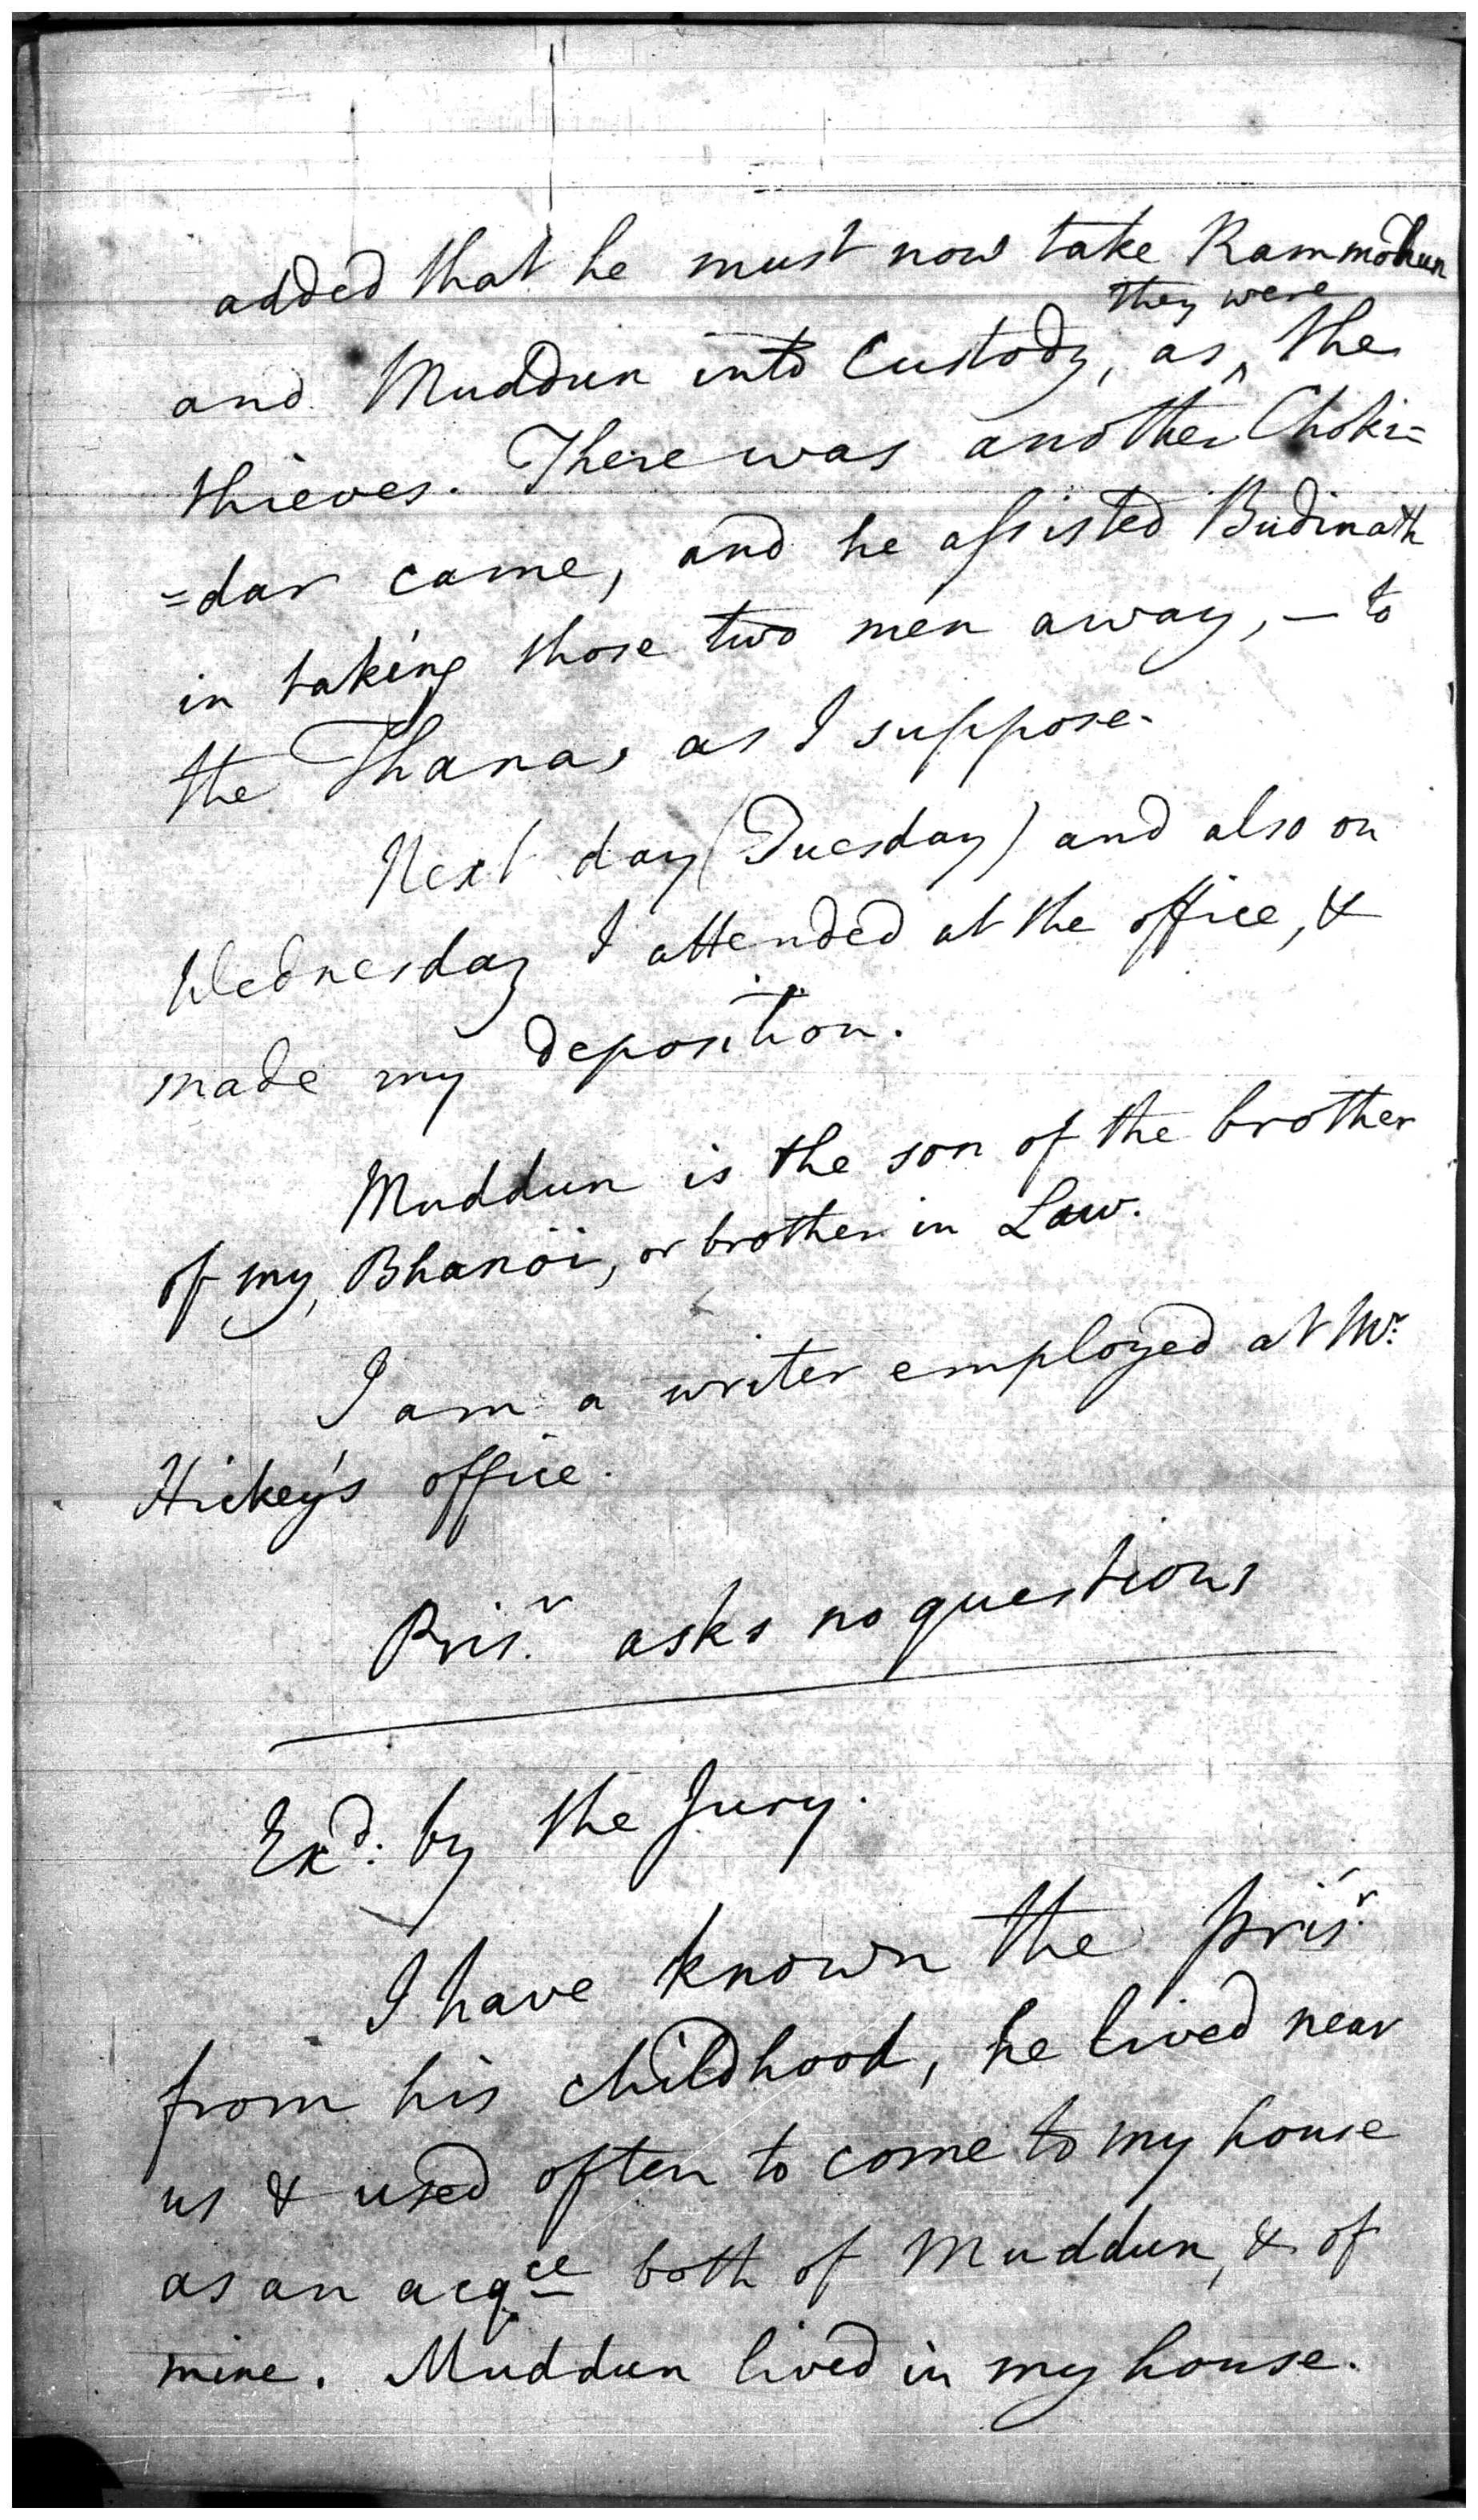 added that he must now take Rammohun
and Muddun into Custody, as ^ they were the
thieves. There was another Choki=
=dar came, and he assisted Budinath
in taking those two men away, – to
the Thana, as I suppose.
Next day (Tuesday) and also on
Wednesday I attended at the office, &
made my deposition.
Muddun is the son of the brother
of my, Bhanöi, or brother in Law.
I am a writer employed at Mr.
Hickey's office.
Prisr. asks no questions
Exd. by the Jury.
I have known the prisr.
from his childhood, he lived near
us & used often to come to my house
as an acqce both of Muddun, & of
mine. Muddun lived in my house.